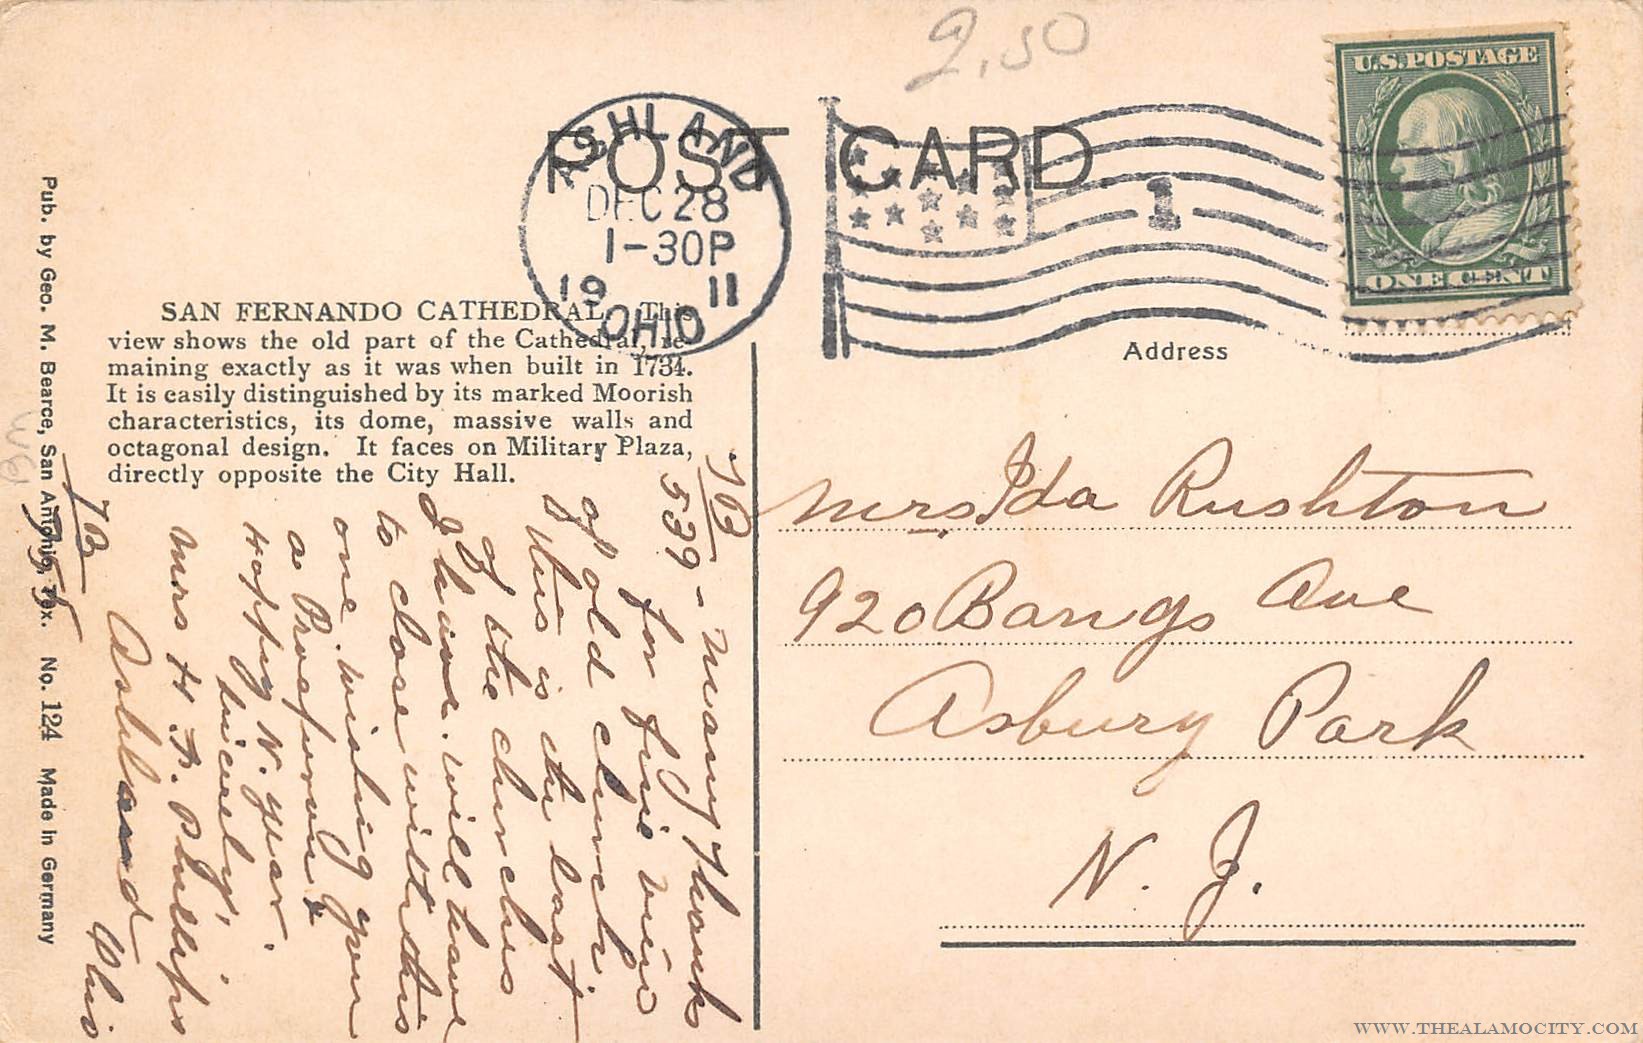 2.50
POST CARD
U.S. POSTAGE
ONE CENT
ASHLAND
DEC 28
1-30P
19 11
OHIO
1
SAN FERNANDO CATHEDRAL. This
view shows the old part of the Cathedral, re-
maining exactly as it was when built in 1734.
It is easily distinguished by its marked Moorish
characteristics, its dome, massive walls and
octagonal design. It faces on Military Plaza,
directly opposite the City Hall.
Address
Mrs. Ida Rushton
920 Bangs Ave
Asbury Park
N. J.
539 - Many thanks
for fine view
of old church
this is the last
of the churches
I have. will have
to close with this
one. wishing you
a Prosperous &
Happy N. year.
Sincerely,
Mrs H. Phillips
Ashland Ohio
Pub. by Geo. M. Bearce, San Antonio, Tex. No. 124 Made in Germany
WWW.THEALAMOCITY.COM